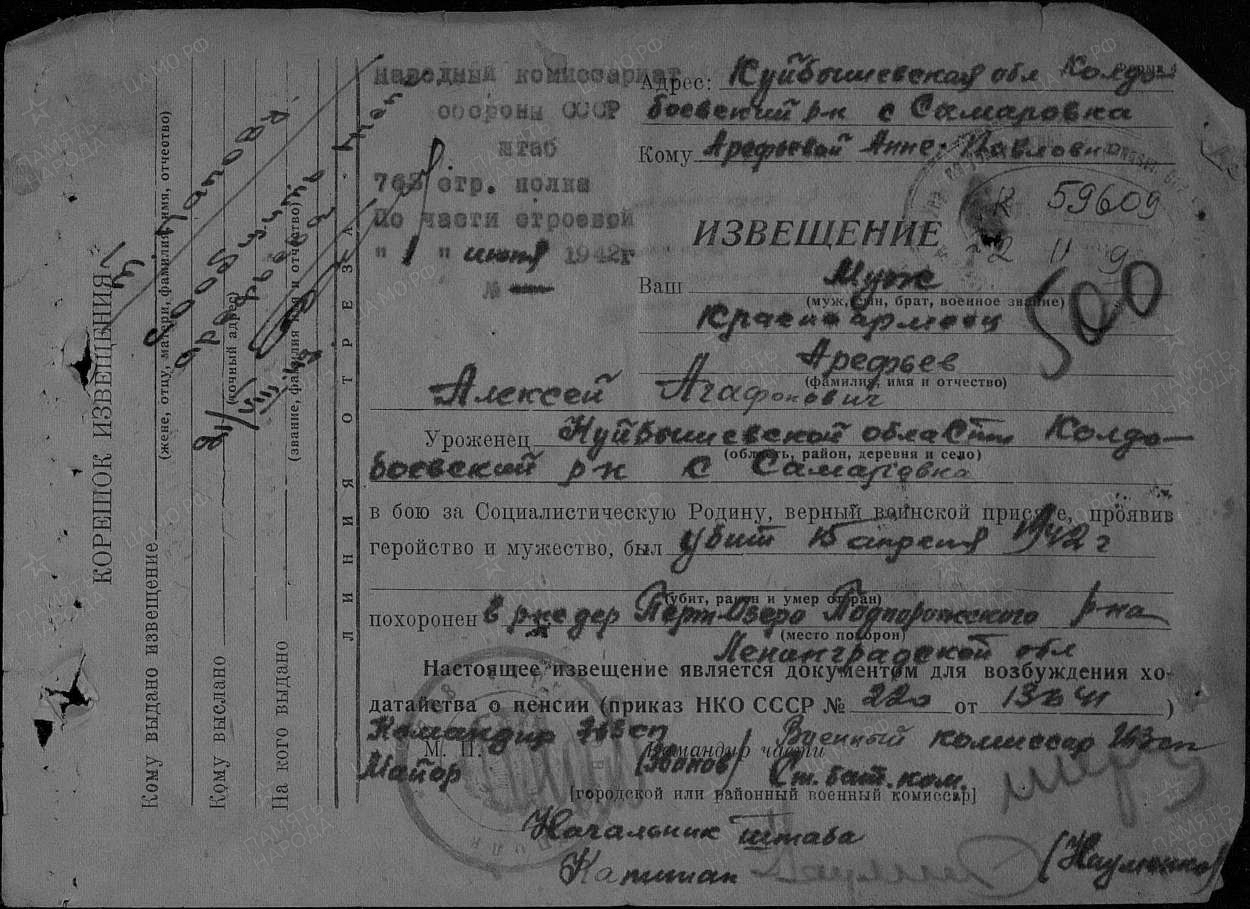 КОРЕШОК ИЗВЕЩЕНИЯ
Кому выдано извещение
(жене, отцу, матери, фамилия, имя, отчество)
Кому выслано
(точный адрес)
На кого выдано
(звание, фамилия, имя и отчество)
ЛИНИЯ ОТРЕЗА
Народный комиссариат
обороны СССР
штаб
763 стр. полка
По части строевой
" 1 " июня 1942г
№
Адрес: Куйбышевская обл Колды-
боевский р-н с Самаровка
Кому Арефьевой Анне Павловне
59609
ИЗВЕЩЕНИЕ
500
Ваш Муж
(муж, сын, брат, военное звание)
Красноармеец
Арефьев
(фамилия, имя и отчество)
Алексей Агафонович
Уроженец Куйбышевской области Колды-
(область, район, деревня и село)
боевский р-н с Самаровка
в бою за Социалистическую Родину, верный воинской присяге, проявив
геройство и мужество, был убит 15 апреля 1942 г
(убит, ранен и умер от ран)
похоронен в р-не дер Перт-Озеро Подпорожского р-на
(место похорон)
Ленинградской обл
Настоящее извещение является документом для возбуждения хо-
датайства о пенсии (приказ НКО СССР № 220 от 13 6 41 )
Командир 763 сп Военный комиссар 763 сп
М. П. Командир части
Майор Ст. бат. ком.
[городской или районный военный комиссар]
Начальник штаба
Капитан (Науменко)